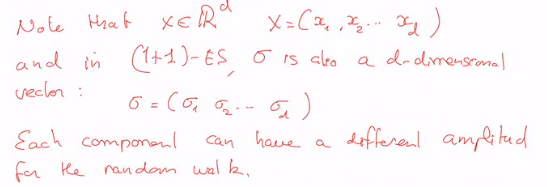 Note that x ∈ ℝ^d x = (x₁, x₂ ... x_d)
and in (1+1)-ES, σ is also a d-dimensional
vector :
σ = (σ₁ σ₂ ... σ_d)
Each component can have a different amplitud
for the random walk.